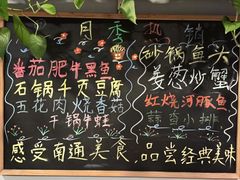 月季热销
番茄肥牛黑鱼
石锅千页豆腐
五花肉烧香菇
干锅牛蛙
砂锅鱼头
姜葱炒蟹
红烧河豚鱼
蒜香小排
感受南通美食,品尝经典美味